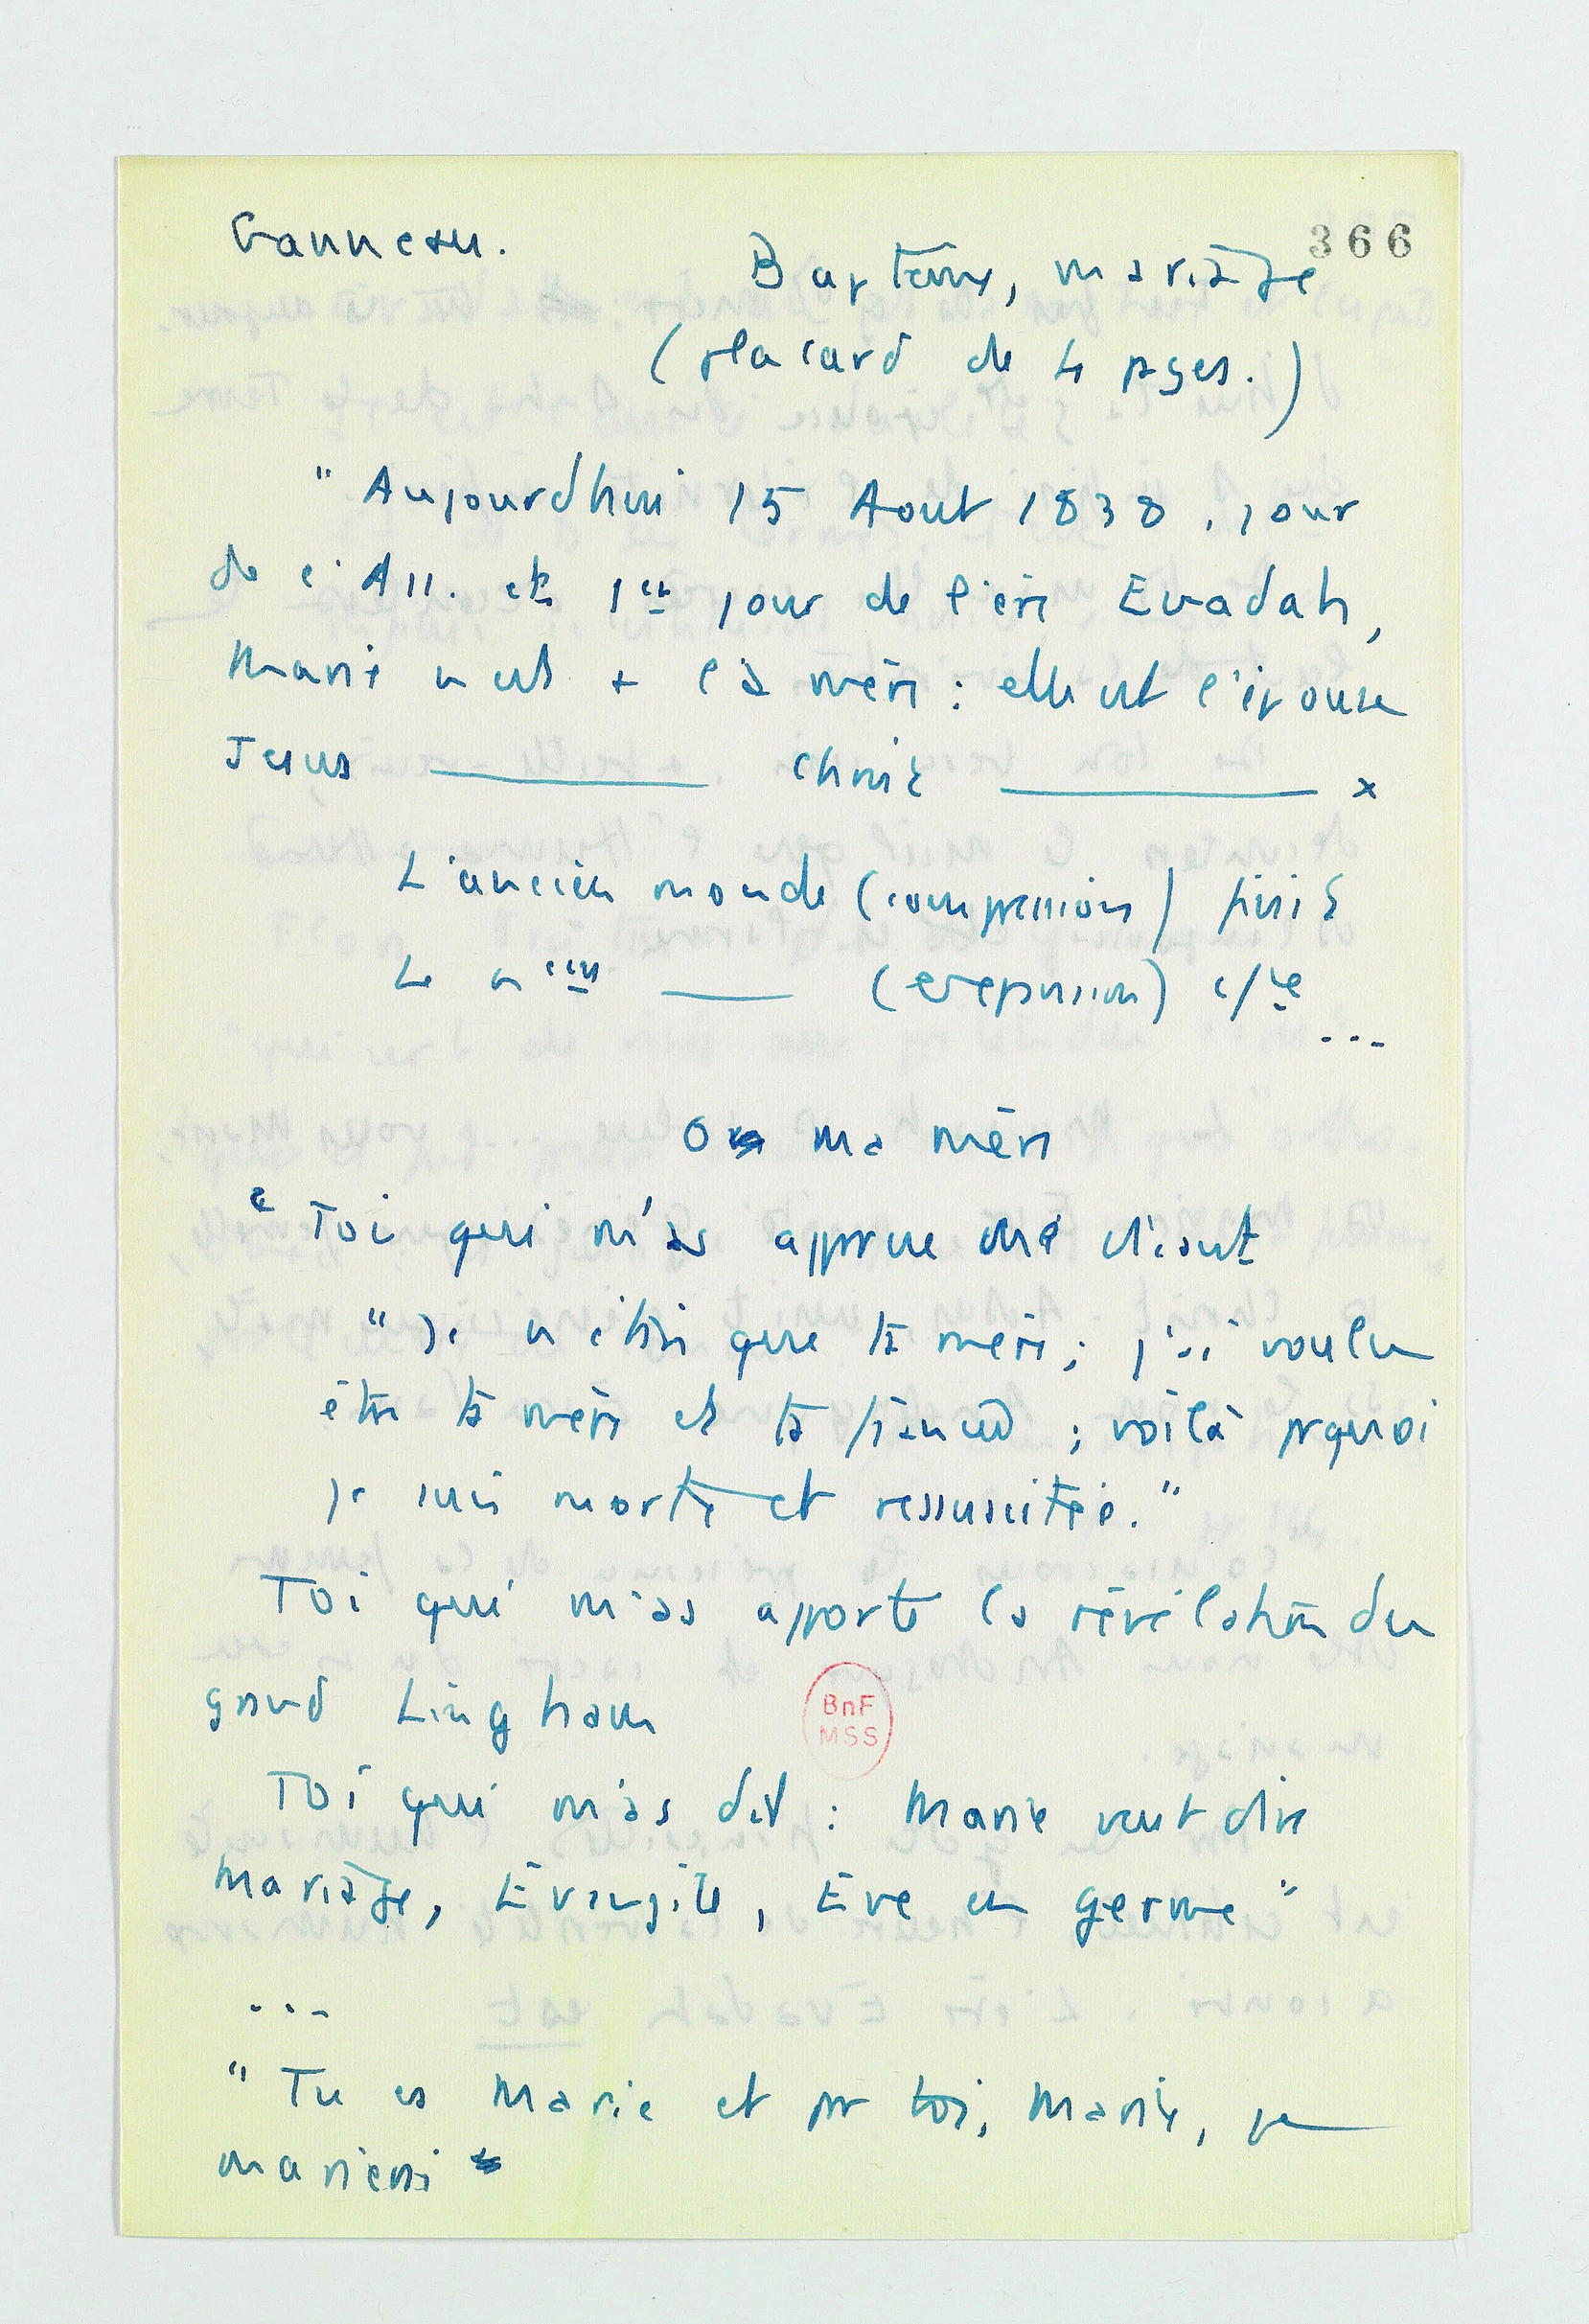 Ganneau.
366
Baptême, mariage
(placard de 4 pages.)
"Aujourdhui 15 Aout 1838, jour
de l'Ass. et 1er jour de l'ère Evadah,
Marie n'est + la mère : elle est l'épouse
Jesus ——— Christ ——— x
L'ancien monde (compression) finit
Le n —— (expansion) c/ce
...
O ma mère
"Toi qui m'as apparue me disant
"Je n'étais que ta mère ; j'ai voulu
être ta mère et ta fiancée ; voilà pquoi
je suis morte et ressuscitée."
Toi qui m'as apporté la révélation du
grand Lingham
Toi qui m'as dit : Marie veut dire
Mariage, Evangile, Eve en germe"
...
"Tu es Marie et pr toi, Marie, je
marierai
BnF
MSS